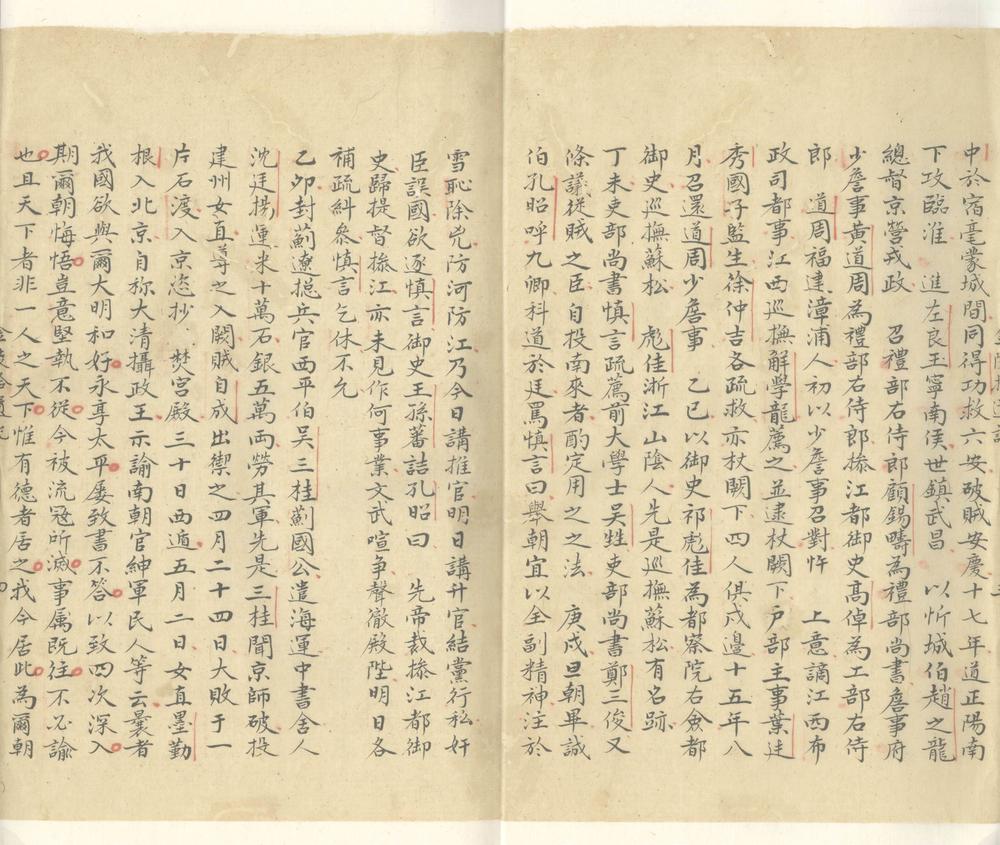 中於宿亳蒙城間同得功救六安破賊安慶十七年道正陽南
下攻臨淮　進左良玉寧南侯世鎮武昌　以忻城伯趙之龍
總督京營戎政　召禮部右侍郎顧錫疇為禮部尚書詹事府
少詹事黃道周為禮部右侍郎掾江都御史高倬為工部右侍
郎　道周福建漳浦人初以少詹事召對忤　上意謫江西布
政司都事江西巡撫解學龍薦之並逮杖闕下戶部主事葉廷
秀國子監生徐仲吉各疏救亦杖闕下四人俱戍邊十五年八
月召還道周少詹事　乙巳以御史祁彪佳為都察院右僉都
御史巡撫蘇松　彪佳浙江山陰人先是巡撫蘇松有名跡
丁未吏部尚書慎言疏薦前大學士吳甡吏部尚書鄭三俊又
條議從賊之臣自投南來者酌定用之之法　庚戌旦朝畢誠
伯孔昭呼九卿科道於廷罵慎言曰舉朝宜以全副精神注於
雪恥除兇防河防江乃今日講推官明日講升官結黨行私奸
臣誤國欲逐慎言御史王孫蕃詰孔昭曰　先帝裁掾江都御
史歸提督掾江亦未見作何事業文武喧爭聲徹殿陛明日各
補疏糾參慎言乞休不允
乙卯封薊遼總兵官西平伯吳三桂薊國公遣海運中書舍人
沈廷揚運米十萬石銀五萬兩勞其軍先是三桂聞京師破投
建州女直導之入闕賊自成出禦之四月二十四日大敗于一
片石渡入京恣抄　焚宮殿三十日西遁五月二日女直墨勤
根入北京自称大清攝政王示諭南朝官紳軍民人等云曩者
我國欲與爾大明和好永享太平屢致書不答以致四次深入
期爾朝悔悟豈意堅執不從今被流寇所滅事属既往不必諭
也且天下者非一人之天下惟有德者居之我今居此為爾朝